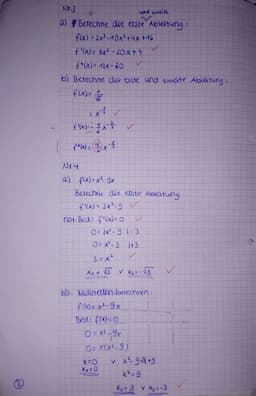 Nr.3
und zweite
a) Berechne die erste Ableitung:
f(x) = 2x³-10x²+4x+16
f'(x) = 6x² - 20x + 4
f''(x) = 12x - 20
b) Berechne die erste und zweite Ableitung:
Nr.4
a) f(x) = x³-9x
Berechne die erste Ableitung
f'(x) = 3x²-9
not. Bed.: f'(x)=0
0 = 3x²-9 |:3
0 = x²-3 |+3
3 = x²
x₁ = √3 v x₂ = -√3
b) Nullstellen berechnen:
f(x) = x³-9x
Bed: f(x)=0
0 = x³-9x
0 = x(x²-9)
x=0 v x²-9=0 |+9
x₁=0 x²=9
x₂=3 v x₃=-3